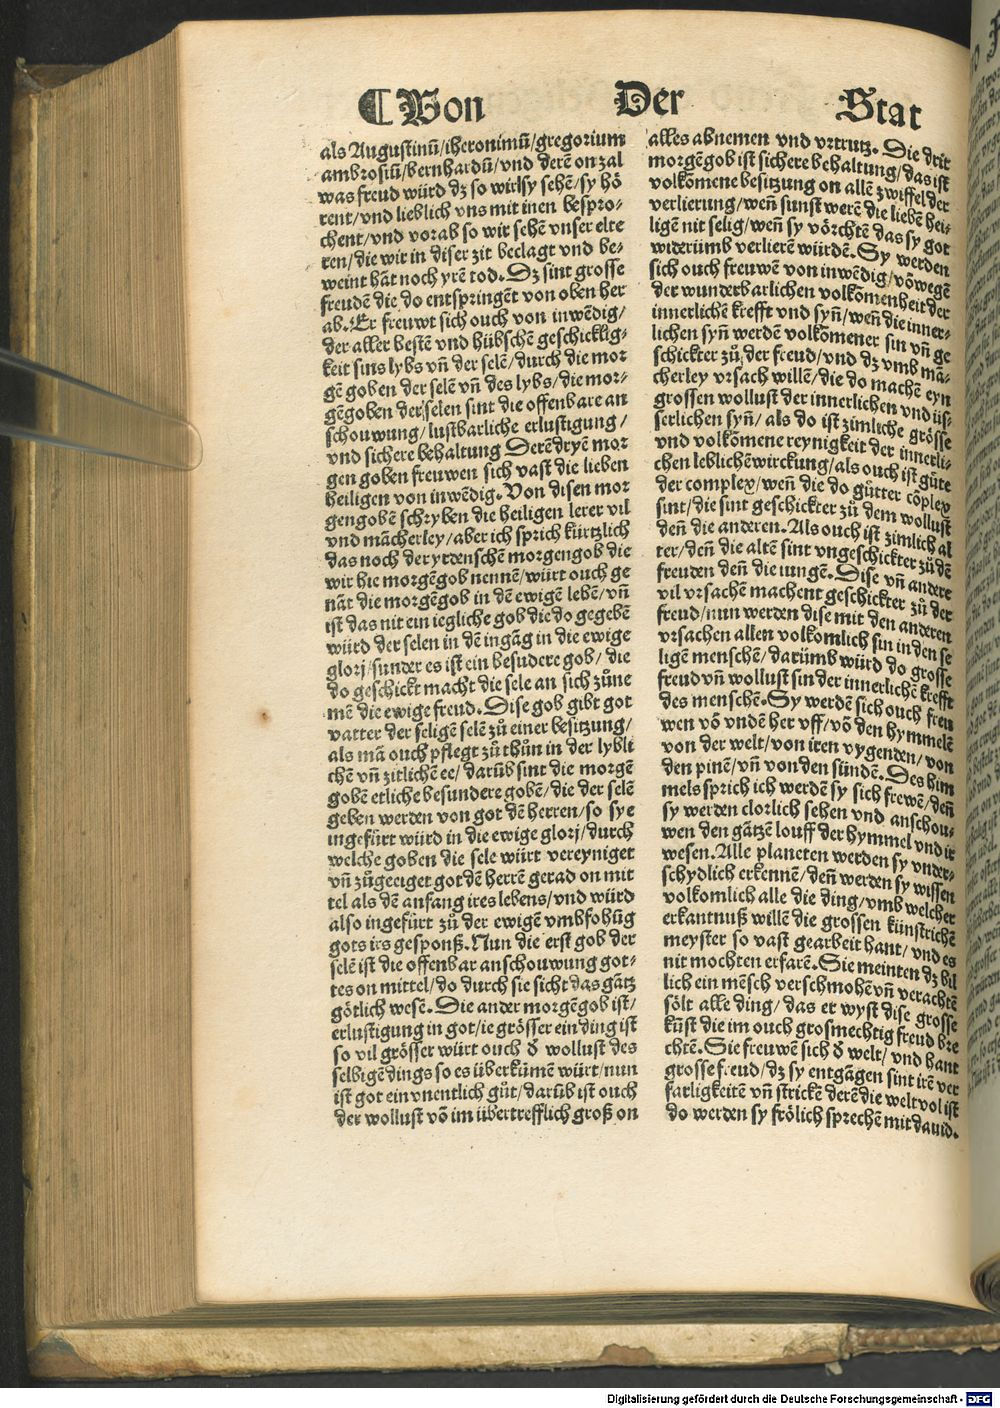 ¶ Von Der Stat
als Augustinū/iheronimū/gregorium
ambrosiū/bernhardū/vnd derē on zal
was freud würd dz so wir sy sehē/sy hö
rent/vnd lieblich vns mit inen bespro-
chent/vnd vorab so wir sehē vnser elte
ren/die wir in diser zit beclagt vnd be-
weint hāt noch yrē tod. Dz sint grosse
freudē die do entspringēt von oben her
ab. Er freuwt sich ouch von inwēdig/
der aller bestē vnd hübschē geschicklig-
keit sins lybs vñ der selē/durch die mor
gē goben der selē vñ des lybs/die mor-
gēgoben der selen sint die offenbare an
schouwung/lustbarliche erlustigung/
vnd sichere behaltung Derē dryē mor
gen goben freuwen sich vast die lieben
heiligen von inwēdig. Von disen mor
gengobē schryben die heiligen lerer vil
vnd mācherley/aber ich sprich kürtzlich
das noch der yrdenschē morgengob die
wir hie morgēgob nennē/würt ouch ge
nāt die morgēgob in dē ewigē lebē/vñ
ist das nit ein iegliche gob die do gegebē
würd der selen in dē ingāg in die ewige
glorj/sunder es ist ein besudere gob/die
do geschickt macht die sele an sich zůne
mē die ewige freud. Dise gob gibt got
vatter der seligē selē zů einer besitzung/
als mā ouch pflegt zů thůn in der lybli
chē vñ zitlichē ee/darūb sint die morgē
gobē etliche besundere gobē/die der selē
geben werden von got dē herren/so sy e
ingefürt würd in die ewige glorj/durch
welche goben die sele würt vereyniget
vñ zůgeeiget got dē herrē gerad on mit
tel als dē anfang ires lebens/vnd würd
also ingefürt zů der ewigē vmbfohūg
gots irs gesponß. Nun die erst gob der
selē ist die offenbar anschouwung got-
tes on mittel/do durch sie sicht das gātz
götlich wesē. Die ander morgēgob ist/
erlustigung in got/ie grösser ein ding ist
so vil grösser würt ouch ð wollust des
selbigē dings so es überkumē würt/nun
ist got ein vnentlich gůt/darūb ist ouch
der wollust vō im übertrefflich groß on
alles abnemen vnd vrtrutz. Die drit
morgēgob ist sichere behaltung/das ist
volkōmene besitzung on allē zwiffel der
verlierung/weñ sunst werē die liebē hei-
ligē nit selig/weñ sy vörchtē das sy got
widerūmb verlierē würdē. Sy werden
sich ouch freuwē von inwēdig/vō wegē
der wunderbarlichen volkōmenheit der
innerlichē krefft vnd syñ/weñ die inner-
lichen syñ werdē volkōmener sin vñ ge
schickter zů der freud/vnd dz vmb mā-
cherley vrsach willē/die do machē eyn
grossen wollust der innerlichen vnd üs-
serlichen syñ/als do ist zimliche grösse
vnd volkōmene reynigkeit der innerli-
chen leblichē wirckung/als ouch ist gůte
der complex/weñ die do gůtter cōplex
sint/die sint geschickter zů dem wollust
deñ die anderen. Als ouch ist zimlich al
ter/deñ die altē sint vngeschickter zů dē
freuden deñ die iungē. Dise vñ andere
vil vrsachē machent geschickter zů der
freud/nun werden dise mit den anderen
vrsachen allen volkomlich sin in den se
ligē menschē/darūmb würd do grosse
freud vñ wollust sin der innerlichē krefft
des menschē. Sy werdē sich ouch freu
wen vō vndē her vff/vō den hymmelē
von der welt/von iren vygenden/von
den pinē/vñ von den sündē. Des him
mels sprich ich werdē sy sich frewē/deñ
sy werden clorlich sehen vnd anschou-
wen den gātzē louff der hymmel vnd ir
wesen. Alle planeten werden sy vnder-
schydlich erkennē/deñ werden sy wissen
volkomlich alle die ding/vmb welcher
erkantnuß willē die grossen künstrichē
meyster so vast gearbeit hant/vnd es
nit mochten erfarē. Sie meinten dz bil
lich ein mēsch verschmohē vñ verachtē
sölt alle ding/das er wyst dise grosse
kūst die im ouch grosmechtig freud bre
chtē. Sie freuwē sich ð welt/vnd hant
grosse freud/dz sy entgāgen sint irē ver
fatligkeitē vñ strickē derē die welt vol ist
do werden sy frölich sprechē mit dauid.
Digitalisierung gefördert durch die Deutsche Forschungsgemeinschaft - DFG